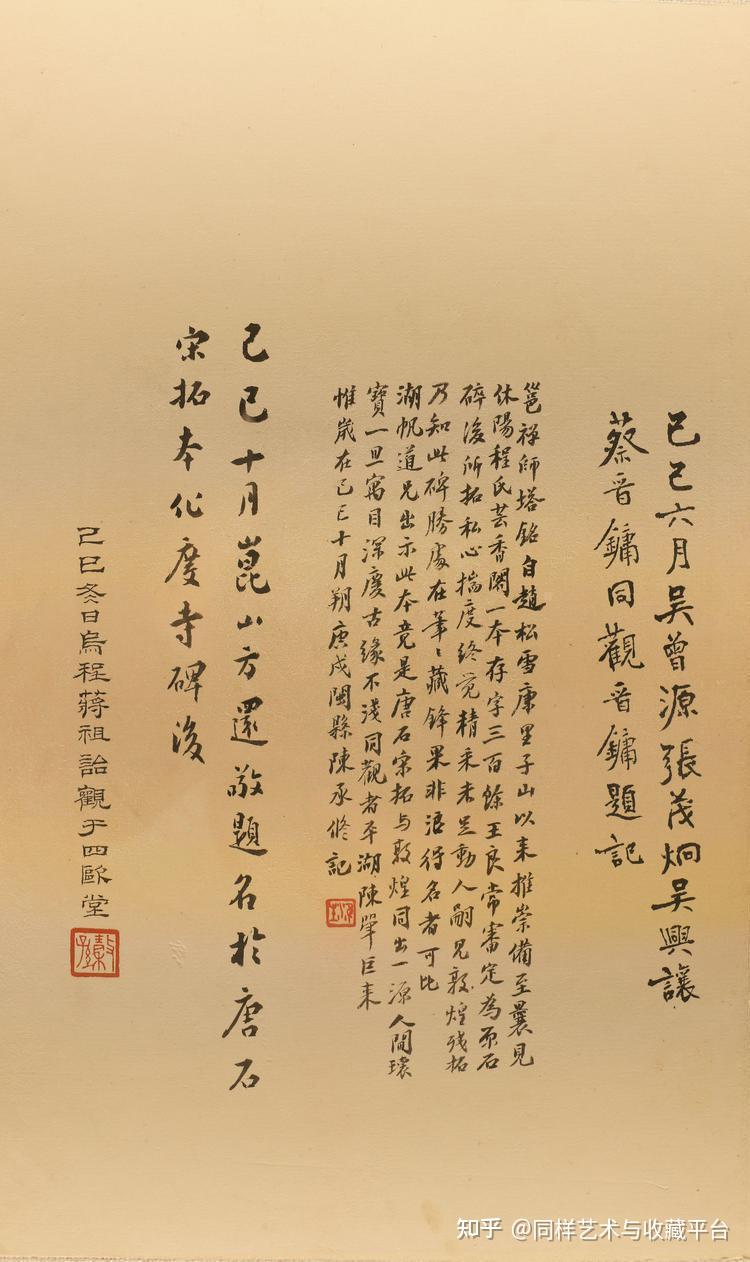 己巳六月吴曾源張茂炯吴興讓
蔡晋鏞同觀晋鏞題記
邕禪師塔銘自趙松雪康里子山以来推崇備至曩見
休陽程氏芸香閣一本存字三百餘王良常審定為原石
碎後所拓私心揣度终觉精采未足動人嗣見敦煌残拓
乃知此碑勝處在筆〻藏鋒果非浪得名者可比
湖帆道兄出示此本竟是唐石宋拓与敦煌同出一源人間瓌
寶一旦寓目深慶古缘不淺同觀者平湖陳鞏巨来
惟歲在己巳十月朔庚戌閩縣陳承修記
己巳十月崑山方還敬題名於唐石
宋拓本化度寺碑後
己巳冬日烏程蔣祖詒觀于四歐堂
知乎 @同样艺术与收藏平台